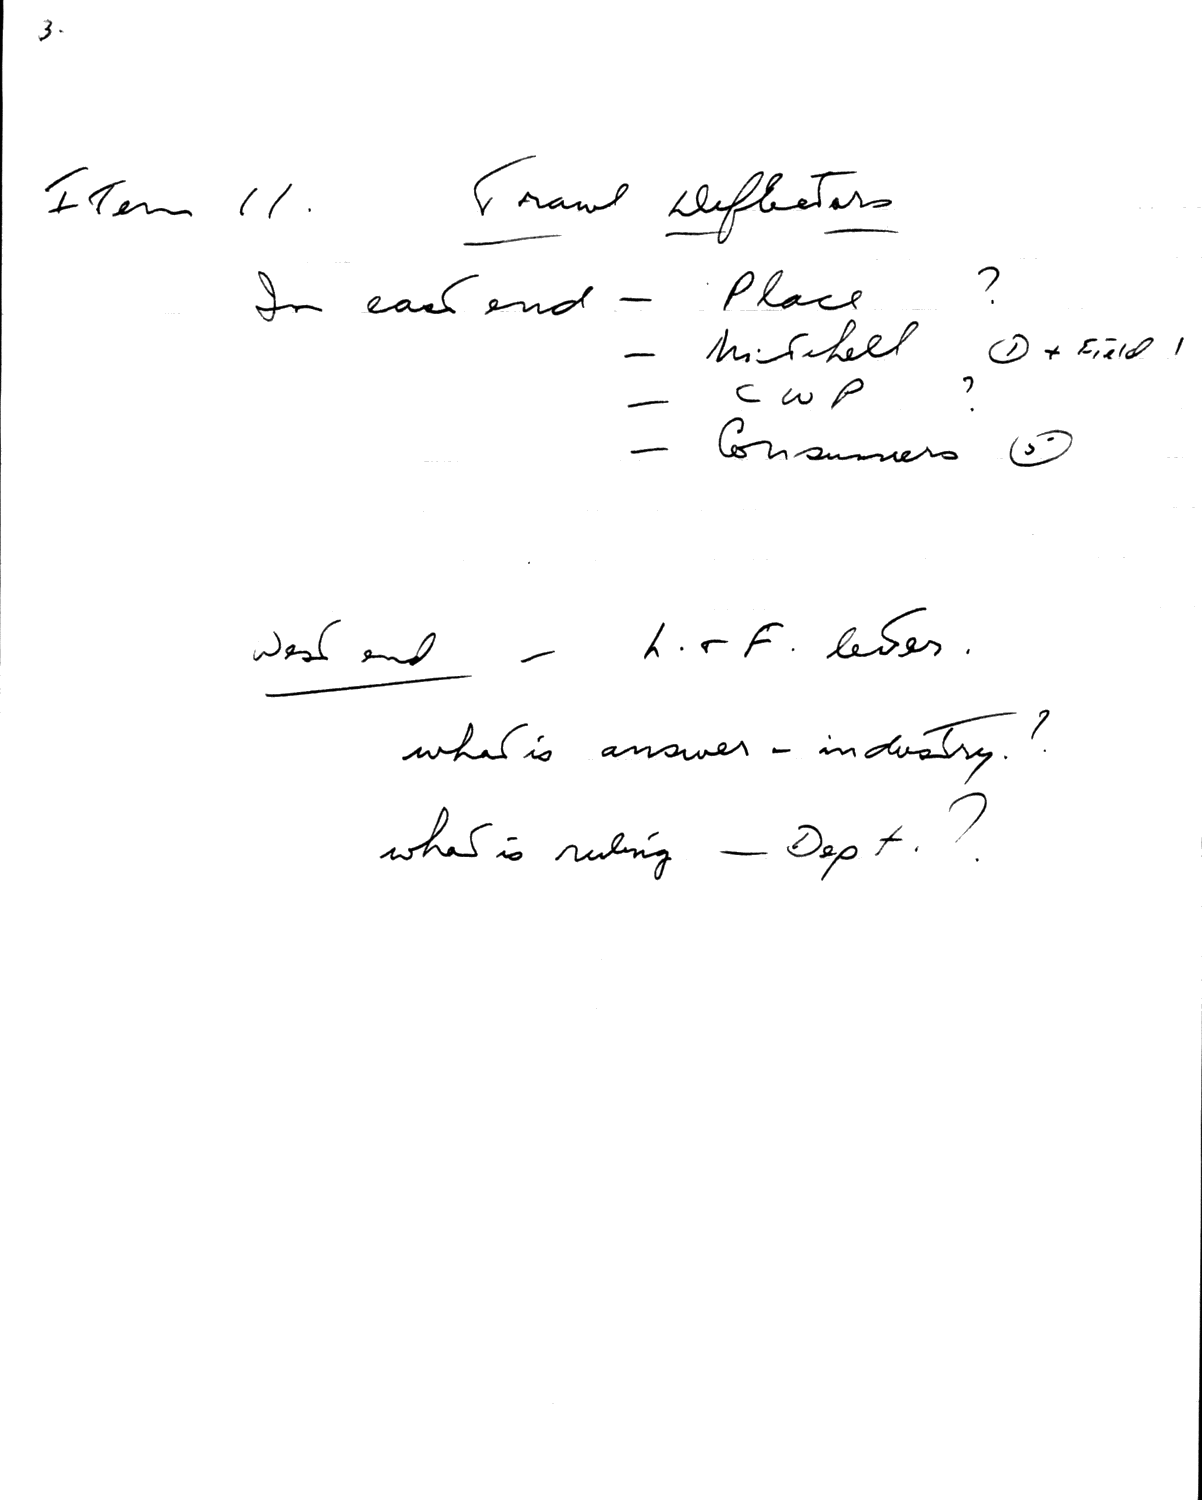 3.
Item 11. Trawl Deflectors
In east end - Place ?
- Mitchell ① + Field 1
- CWP ?
- Consumers ⑤
West end - L. & F. letter.
what is answer - industry. ?
what is ruling - Dept. ?